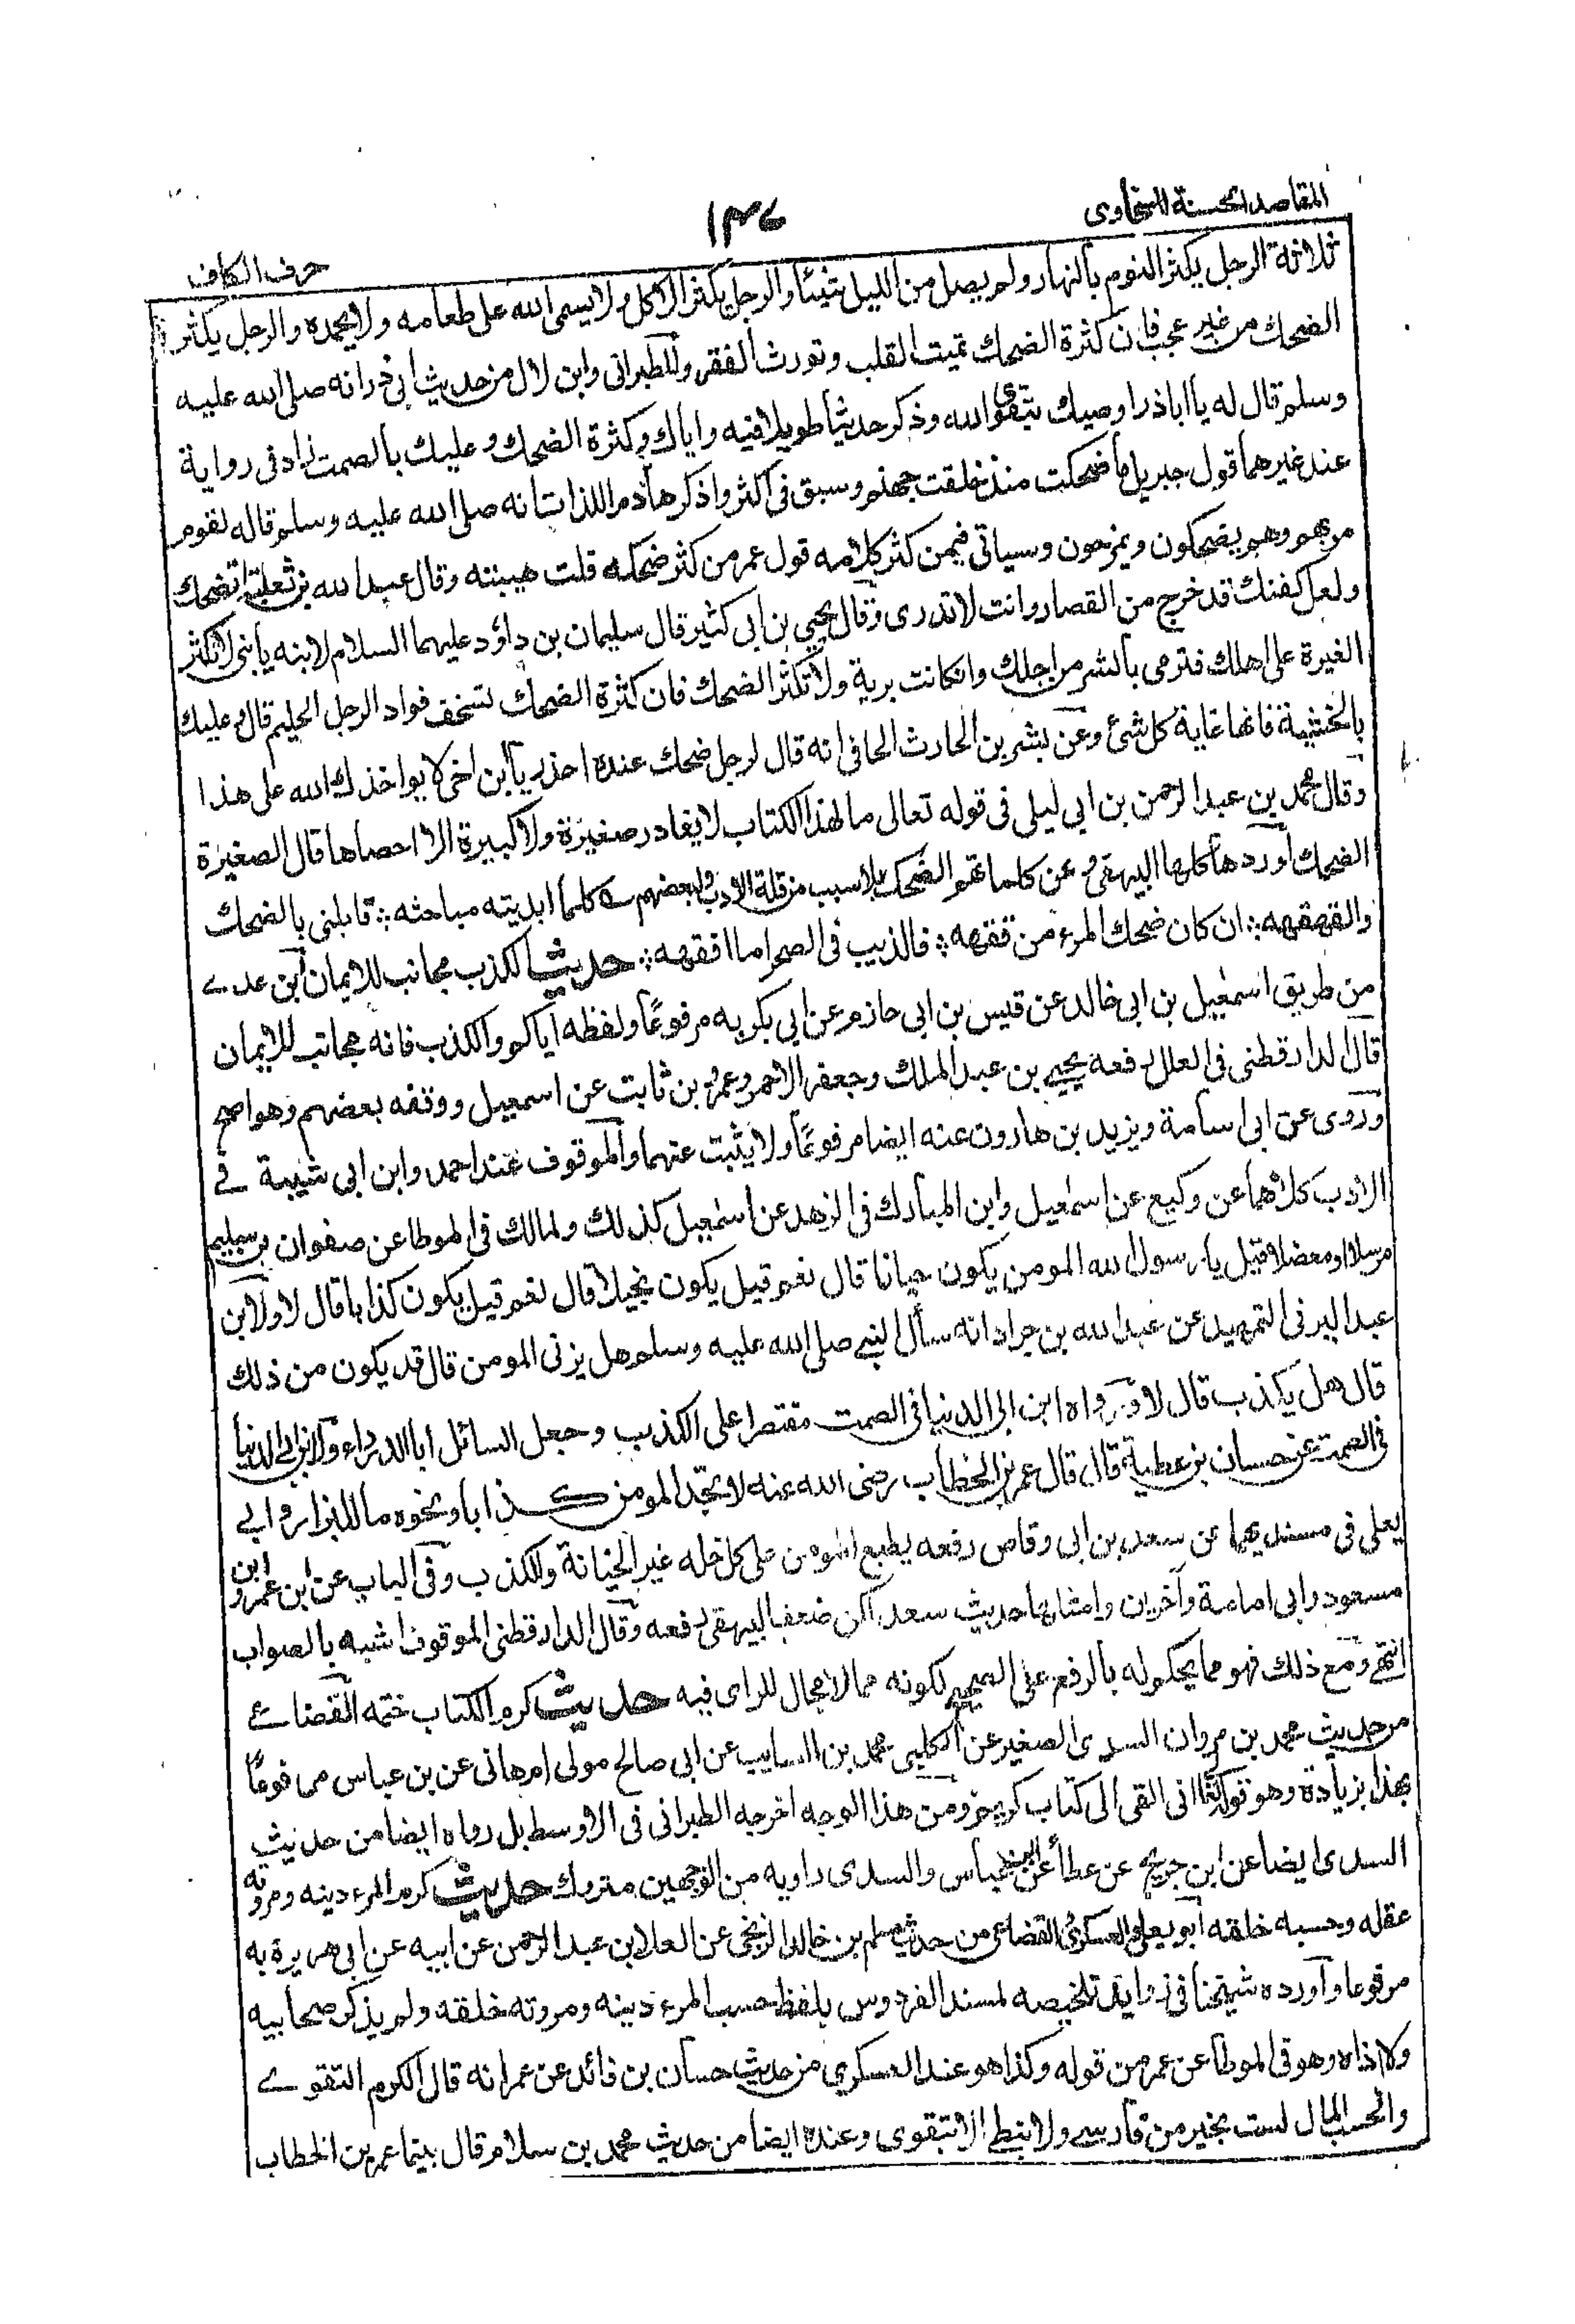 المقاصد الحسنة للسخاوى
١٤٦
حرف الكاف
ثلاثة الرجل يكثر النوم بالنهار ولم يصل من الليل شيئا والرجل يكثر الاكل ولا يسمى الله على طعامه ولا يحمده والرجل يكثر
الضحك من غير عجب فان كثرة الضحك تميت القلب وتورث الفقر وللطبرانى وابن لال من حديث ابى ذر انه صلى الله عليه
وسلم قال له يا اباذر اوصيك بتقوى الله وذكر حديثا طويلا فيه واياك وكثرة الضحك وعليك بالصمت زاد فى رواية
عند غيرهما قول جبريل ما ضحكت منذ خلقت جهنم وسبق فى اكثروا ذكر هاذم اللذات انه صلى الله عليه وسلم قاله لقوم
مر بهم وهم يضحكون ويمزحون وسياتى فيمن كثر كلامه قول عمر من كثر ضحكه قلت هيبته وقال عبد الله بن ثعلبة اتضحك
ولعل كفنك قد خرج من القصار وانت لا تدرى وقال يحيى بن ابى كثير قال سليمان بن داؤد عليهما السلام لابنه يا بنى لا تكثر
الغيرة على اهلك فترمى بالشر من اجلك وان كانت برية ولا تكثر الضحك فان كثرة الضحك تستخف فواد الرجل الحليم قال وعليك
بالخشية فانها غاية كل شئ وعن بشر بن الحارث الحافى انه قال لرجل ضحك عنده احذر يا ابن اخى لا يواخذك الله على هذا
وقال محمد بن عبد الرحمن بن ابى ليلى فى قوله تعالى ما لهذا الكتاب لا يغادر صغيرة ولا كبيرة الا احصاها قال الصغيرة
الضحك اوردها كلها البيهقى وعن كلما تقم الضحك بلا سبب من قلة الادب ولبعضهم كلما ابديته مباحثه ؞ قابلنى بالضحك
والقهقهه ؞ ان كان ضحك المرء من فقهه ؞ فالذيب فى الصحرا ما افقهه ؞ حديث الكذب مجانب للايمان ابن عدے
من طريق اسمعيل بن ابى خالد عن قيس بن ابى حازم عن ابى بكر به مرفوعًا ولفظه اياكم والكذب فانه مجانب للايمان
قال الدارقطنى فى العلل رفعه يحيى بن عبد الملك وجعفر الاحمر وعمرو بن ثابت عن اسمعيل ووقفه بعضهم وهو اصح
وروى عن ابى اسامة ويزيد بن هارون عنه ايضا مرفوعًا ولا يثبت عنهما والموقوف عند احمد وابن ابى شيبة فے
الادب كلاهما عن وكيع عن اسمعيل وابن المبارك فى الزهد عن اسمعيل كذلك ولمالك فى الموطا عن صفوان بن سليم
مرسلا او معضلا قيل يا رسول الله المومن يكون جبانا قال نعم قيل يكون بخيلا قال نعم قيل يكون كذابا قال لا ولابن
عبد البر فى التمهيد عن عبد الله بن جراد انه سأل النبے صلى الله عليه وسلم هل يزنى المومن قال قد يكون من ذلك
قال هل يكذب قال لا ورواه ابن ابى الدنيا فى الصمت مقتصرا على الكذب وجعل السائل ابا الدرداء ولابن ابى الدنيا
فى الصمت عن حسان بن عطية قال قال عمر بن الخطاب رضى الله عنه لا تجد المومن كذابا ونحوه ما للبزار وابے
يعلى فى مسنديهما عن سعد بن ابى وقاص رفعه يطبع المومن على كل خلة غير الخيانة والكذب وفى الباب عن ابن عمر وابن
مسعود وابى امامة وآخرين وامثلها حديث سعد لكن ضعف البيهقى رفعه وقال الدارقطنى الموقوف اشبه بالصواب
انتهے ومع ذلك فهو مما يحكم له بالرفع على الصحيح لكونه مما لا مجال للراى فيه حديث كرم الكتاب ختمه القضاعے
من حديث محمد بن مروان السدى الصغير عن الكلبى محمد بن السايب عن ابى صالح مولى ام هانى عن بن عباس مرفوعًا
بهذا بزيادة وهو قوله تعالى انى القى الى كتاب كريم ومن هذا الوجه اخرجه الطبرانى فى الاوسط بل رواه ايضا من حديث
السدى ايضا عن ابن جريج عن عطأ عن ابن عباس والسدى راويه من الوجهين متروك حديث كرم المرء دينه ومروته
عقله وحسبه خلقه ابو يعلى والعسكرى والقضاعى من حديث مسلم بن خالد الزنجى عن العلا بن عبد الرحمن عن ابيه عن ابى هريرة به
مرفوعا واورده شيخنا فى زوايد تلخيصه لمسند الفردوس بلفظ حسب المرء دينه ومروته خلقه ولم يذكر صحابيه
ولا اذاه وهو فى الموطا عن عمر من قوله وكذا هو عند العسكرى من حديث حسان بن فائد عن عمر انه قال الكرم التقوے
والحسب المال لست بخير من فارسے ولا نبطے الا بتقوى وعنده ايضا من حديث محمد بن سلام قال بينما عمر بن الخطاب